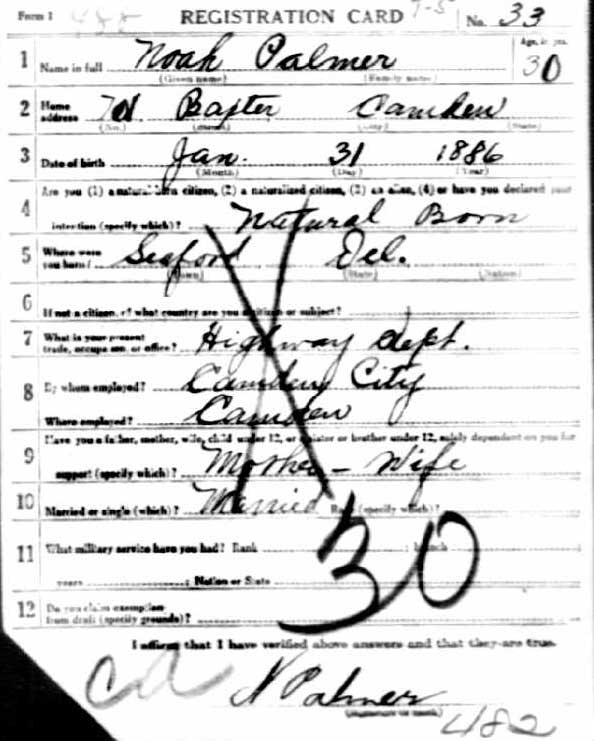 Form 1 482 REGISTRATION CARD 7-5 No. 33
1 Name in full Noah Palmer Age, in yrs. 30
(Given name) (Family name)
2 Home address Baxter Camden
(No.) (Street) (City) (State)
3 Date of birth Jan. 31 1886
(Month) (Day) (Year)
4 Are you (1) a natural born citizen, (2) a naturalized citizen, (3) an alien, (4) or have you declared your
intention (specify which)? Natural Born
5 Where were you born? Seaford Del.
(Town) (State) (Nation)
6 If not a citizen, of what country are you a citizen or subject?
7 What is your present trade, occupation, or office? Highway dept.
8 By whom employed? Camden City
Where employed? Camden
9 Have you a father, mother, wife, child under 12, or a sister or brother under 12, solely dependent on you for
support (specify which)? Mother - Wife
10 Married or single (which)? Married Race (specify which)?
11 What military service have you had? Rank ; branch
years ; Nation or State
30
12 Do you claim exemption from draft (specify grounds)?
I affirm that I have verified above answers and that they are true.
N Palmer
(Signature or mark)
482